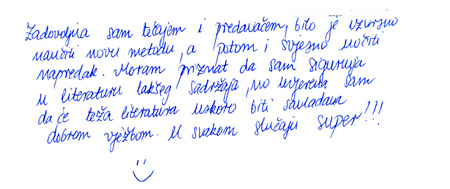 Zadovoljna sam tečajem i predavačem, bilo je izvrsno
naučiti novu metodu, a potom i svjesno uočiti
napredak. Moram priznat da sam sigurnija
u literaturi lakšeg sadržaja, no uvjerena sam
da će teža literatura uskoro biti savladana
dobrom vježbom. U svakom slučaju super!!!